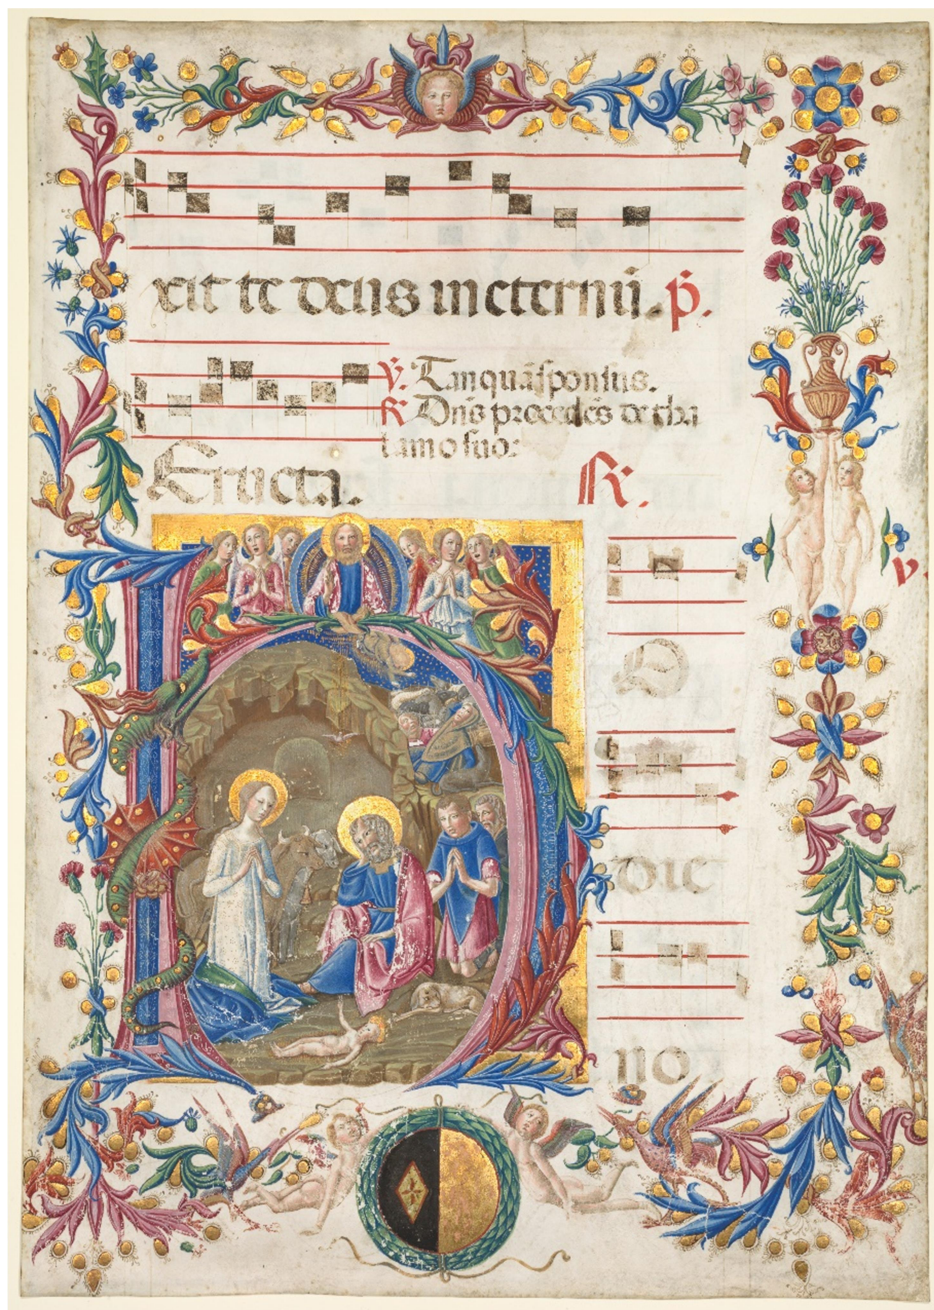 xit te deus in eternũ. p̃.
℣. Tanquã sponsus.
℟. Dn̄s procedẽs de tha
lamo suo:
Eructa. ℟.
v.
H
O
die
no